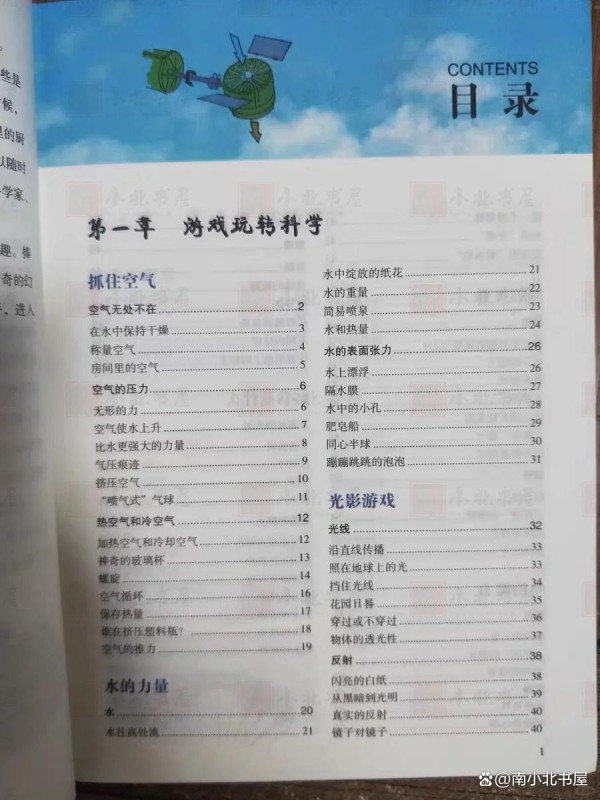 些是
候,
里的厨
以随时
学家、
趣。择
奇的幻
进入
CONTENTS
目录
第一章 游戏玩转科学
抓住空气
空气无处不在 2
在水中保持干燥 3
称量空气 4
房间里的空气 5
空气的压力 6
无形的力 6
空气使水上升 7
比水更强大的力量 8
气压痕迹 9
挤压空气 10
“喷气式”气球 11
热空气和冷空气 12
加热空气和冷却空气 12
神奇的玻璃杯 13
螺旋 14
空气循环 16
保存热量 17
谁在挤压塑料瓶? 18
空气的推力 19
水的力量
水 20
水往高处流 21
水中绽放的纸花 21
水的重量 22
简易喷泉 23
水和热量 24
水的表面张力 26
水上漂浮 26
隔水膜 27
水中的小孔 28
肥皂船 29
同心半球 30
蹦蹦跳跳的泡泡 31
光影游戏
光线 32
沿直线传播 33
照在地球上的光 33
挡住光线 34
花园日晷 35
穿过或不穿过 36
物体的透光性 37
反射 38
闪亮的白纸 38
从黑暗到光明 39
真实的反射 40
镜子对镜子 40
1
小北书屋
@南小北书屋